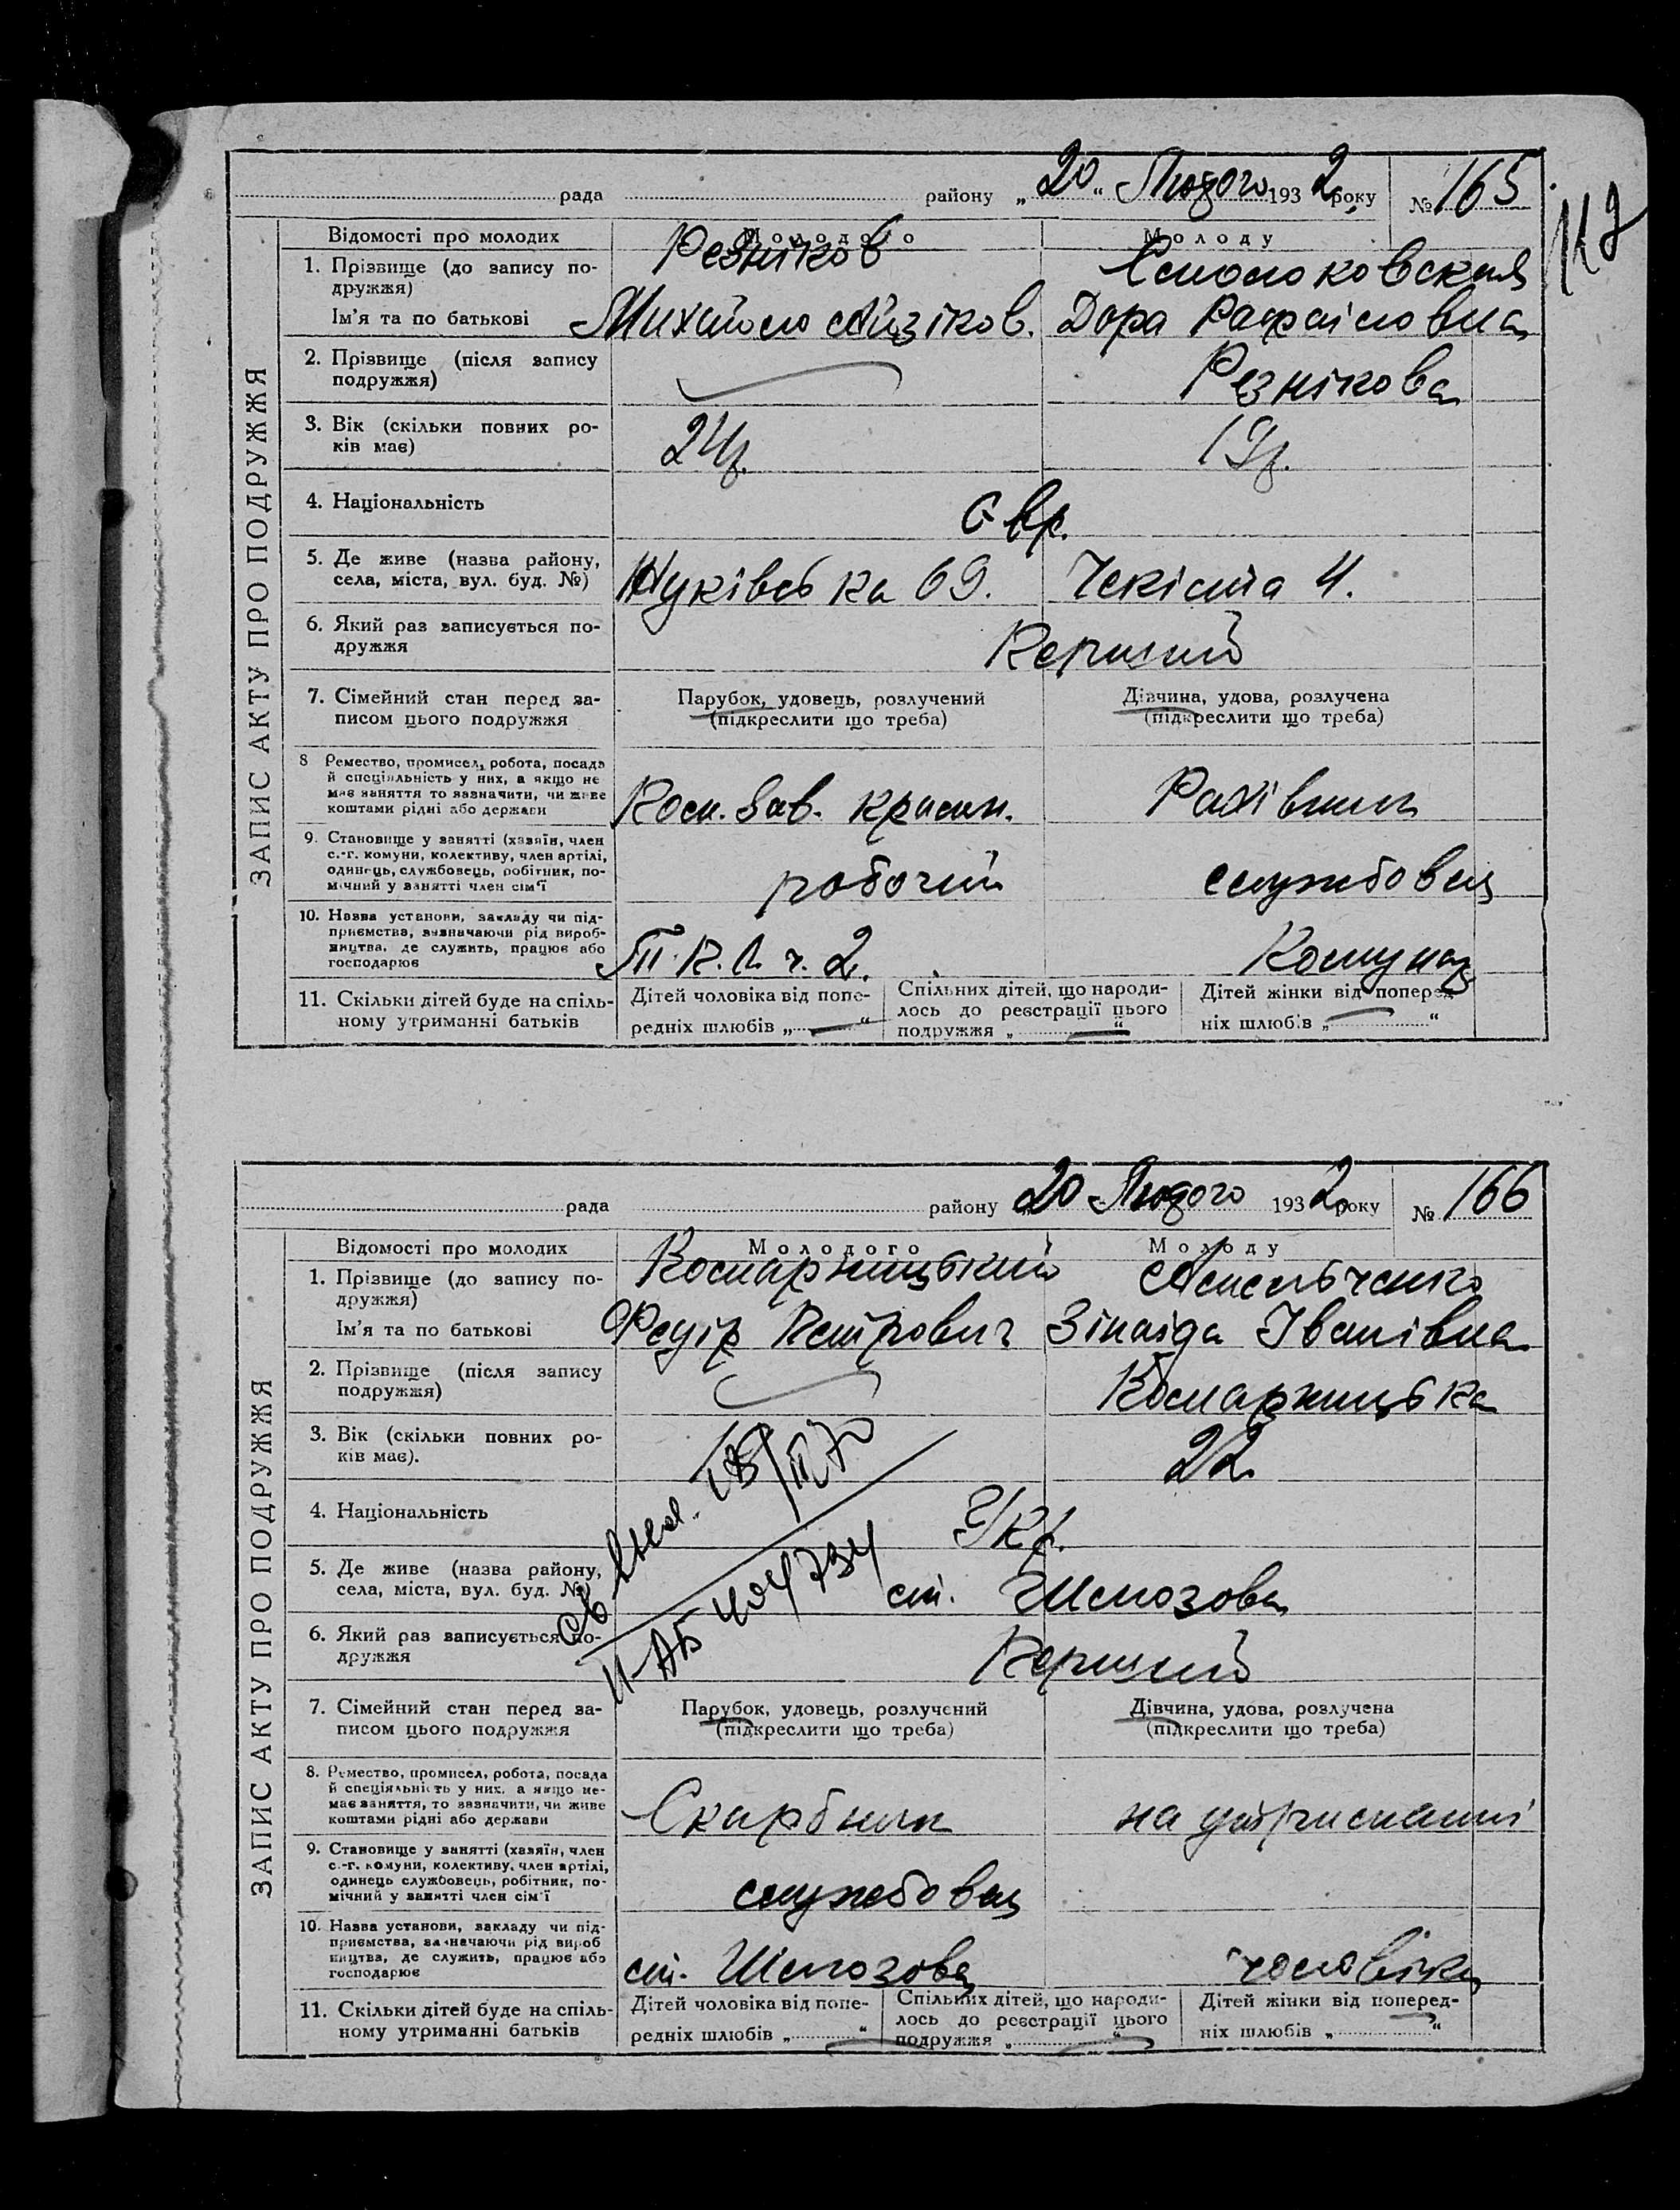 рада району „20“ Лютого 1932 року № 165
ЗАПИС АКТУ ПРО ПОДРУЖЖЯ
Відомості про молодих Молодого Молоду
1. Прізвище (до запису по-
дружжя) Резніков
Ім'я та по батькові Михайло Айзіков. Дора Рафаіловна
2. Прізвище (після запису
подружжя) Резнікова
3. Вік (скільки повних ро-
ків має) 24р. 19р.
4. Національність Євр.
5. Де живе (назва району,
села, міста, вул. буд. №) Жуківська 69. Чекіста 4.
6. Який раз записується по-
дружжя Перший
7. Сімейний стан перед за-
писом цього подружжя
Парубок, удовець, розлучений
(підкреслити що треба)
Дівчина, удова, розлучена
(підкреслити що треба)
8 Ремество, промисел, робота, посада
й спеціяльність у них, а якщо не
має заняття то зазначити, чи живе
коштами рідні або держави
Пом. Зав. крамн. Рахівник
9. Становище у занятті (хазяїн, член
с.-г. комуни, колективу, член артілі,
одинець, службовець, робітник, по-
мічний у занятті член сім'ї
робочий службовец
10. Назва установи, закладу чи під-
приємства, зазначаючи рід вироб-
ництва, де служить, працює або
господарює
ч. 2.
11. Скільки дітей буде на спіль-
ному утриманні батьків
Дітей чоловіка від попе-
редніх шлюбів „ “
Спільних дітей, що народи-
лось до реєстрації цього
подружжя „ “
Дітей жінки від поперед-
ніх шлюбів „ “
20 Лютого 1932 року № 166
рада району
ЗАПИС АКТУ ПРО ПОДРУЖЖЯ
Відомості про молодих Молодого Молоду
1. Прізвище (до запису по-
дружжя) Комарницький
Ім'я та по батькові Федір Петрович Зінаіда Іванівна
2. Прізвище (після запису
подружжя) Комарницька
3. Вік (скільки повних ро-
ків має). 22
4. Національність Укр.
5. Де живе (назва району,
села, міста, вул. буд. №) ст. Шмозова
6. Який раз записується по-
дружжя Перший
ІІ-АБ 404734
7. Сімейний стан перед за-
писом цього подружжя
Парубок, удовець, розлучений
(підкреслити що треба)
Дівчина, удова, розлучена
(підкреслити що треба)
8. Ремество, промисел, робота, посада
й спеціяльність у них, а якщо не-
має заняття, то зазначити, чи живе
коштами рідні або держави
Скарбник на утриманні
9. Становище у занятті (хазяїн, член
с.-г. комуни, колективу, член артілі,
одинець службовець, робітник, по-
мічний у занятті член сім'ї
службовец
10. Назва установи, закладу чи під-
приємства, зазначаючи рід вироб
ництва, де служить, працює або
господарює
ст. Шмозова чоловіка
11. Скільки дітей буде на спіль-
ному утриманні батьків
Дітей чоловіка від попе-
редніх шлюбів „ “
Спільних дітей, що народи-
лось до реєстрації цього
подружжя „ “
Дітей жінки від поперед-
ніх шлюбів „ “